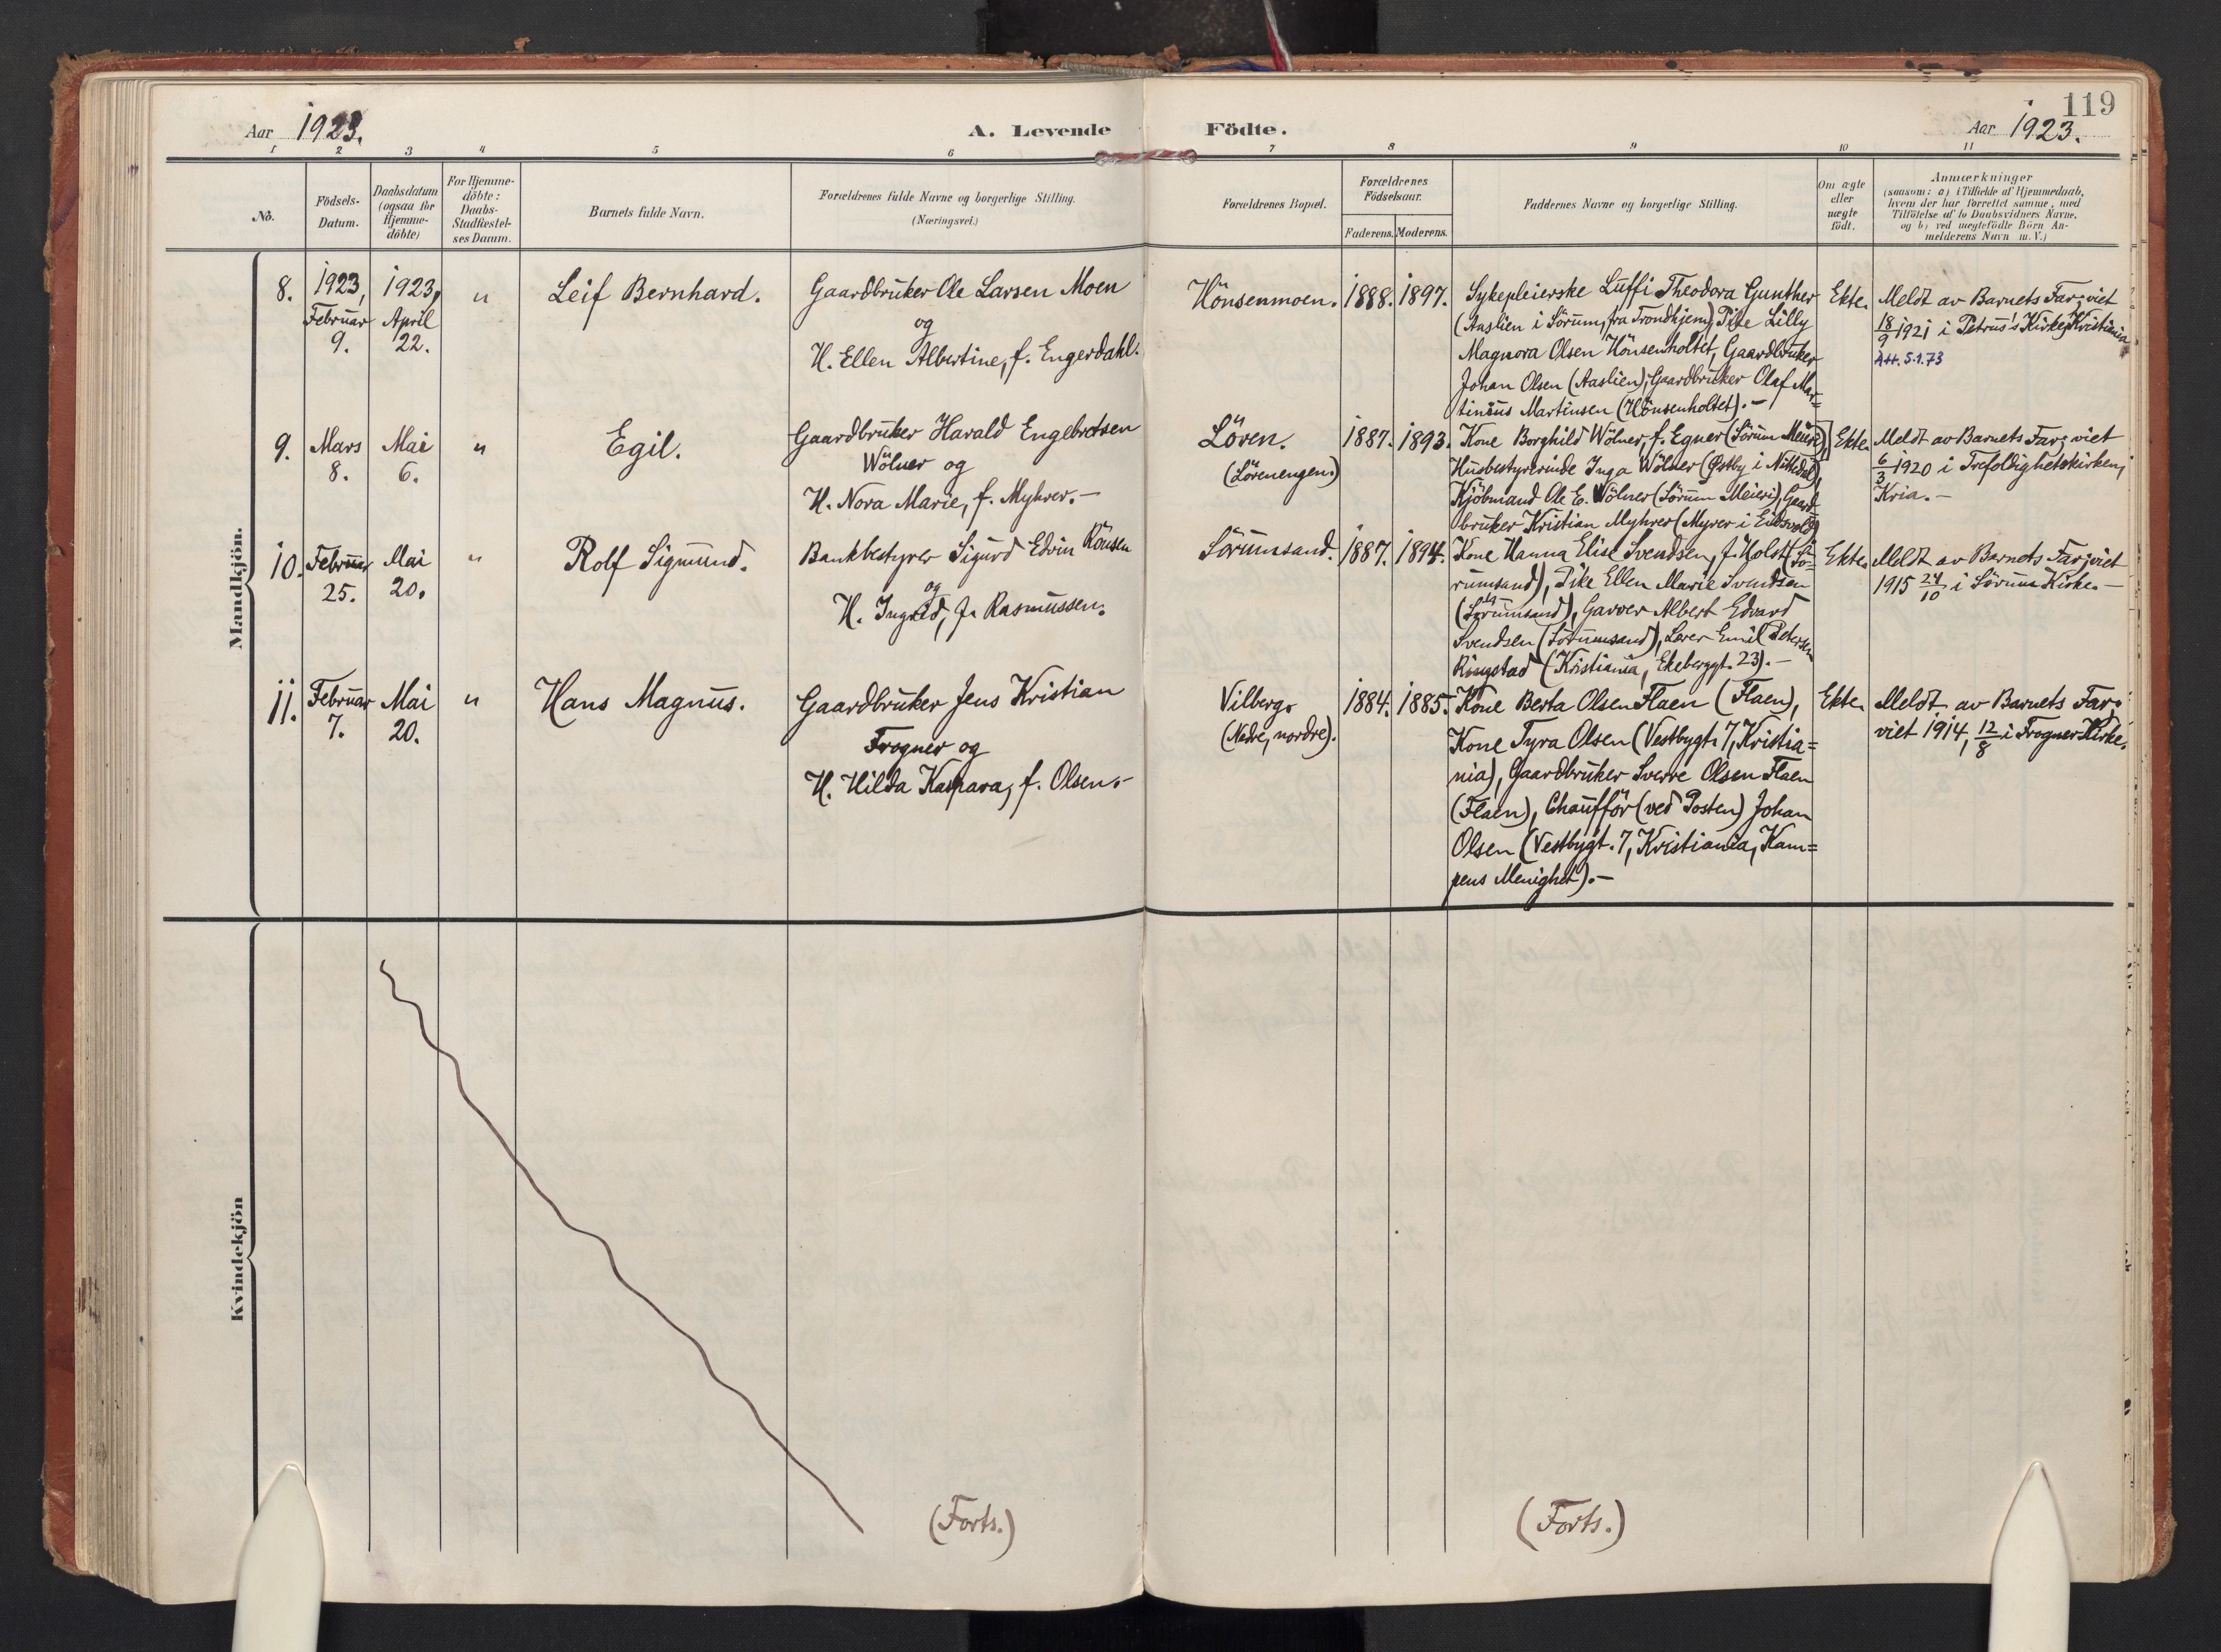 119
Aar 1923.
A. Levende Födte.
Aar 1923.
1 2 3 4 5 6 7 8 9 10 11
No.
Födsels-
Datum.
Daabsdatum
(ogsaa for
Hjemme-
döbte)
For Hjemme-
döbte:
Daabs-
Stadfæstel-
ses Datum.
Barnets fulde Navn.
Forældrenes fulde Navne og borgerlige Stilling.
(Næringsvei.)
Forældrenes Bopæl.
Forældrenes
Födselsaar.
Faderens. Moderens.
Faddernes Navne og borgerlige Stilling.
Om ægte
eller
uægte
födt.
Anmærkninger
(saasom: a) i Tilfælde af Hjemmedaab,
hvem der har forrettet samme, med
Tilföielse af to Daabsvidners Navne,
og b) ved uægtefödte Börn An-
melderens Navn m. V.)
Mandkjön.
8.
1923,
Februar
9.
1923,
April
22.
"
Leif Bernhard.
Gaardbruker Ole Larsen Moen
og
H. Ellen Albertine, f. Engerdahl.
Hönsenmoen.
1888. 1897.
Sykepleierske Luffi Theodora Gunther
(Aaslien i Sörum, fra Trondhjem), Pike Lilly
Magnora Olsen Hönsenholtet, Gaardbruker
Johan Olsen (Aaslien), Gaardbruker Olaf Mar=
tinius Martinsen (Hönsenholtet).-
Ekte.
Meldt av Barnets Far; viet
18/9 1921 i Petrus's Kirke, Kristiania
Att. 5.1.73
9.
Mars
8.
Mai
6.
"
Egil.
Gaardbruker Harald Engebretsen
Wölner og
H. Nora Marie, f. Myhrer.-
Lören.
(Lörenengen.)
1887. 1893.
Kone Borghild Wölner, f. Egner (Sörum Meieri),
Husbestyrerinde Inga Wölner (Østby i Nittedal),
Kjöbmand Ole E. Wölner (Sörum Meieri), Gaard-
bruker Kristian Myhrer (Myrer i Eidsvold)
Ekte.
Meldt av Barnets Far; viet
6/3 1920 i Trefoldighetskirken,
Kria.-
10.
Februar
25.
Mai
20.
"
Rolf Sigmund.
Bankbestyrer Sigurd Edvin Rönsen
og
H. Ingrid, f. Rasmussen.
Sörumsand.
1887. 1894.
Kone Hanna Elise Svendsen, f. Holst (Sö-
rumsand), Pike Ellen Marie Svendsen
(Sörumsand), Garver Albert Edvard
Svendsen (Sörumsand), Lærer Emil Petersen
Ringstad (Kristiania, Ekeberggt. 23).-
Ekte.
Meldt av Barnets Far; viet
1915 24/10 i Sörum Kirke.-
11.
Februar
7.
Mai
20.
"
Hans Magnus.
Gaardbruker Jens Kristian
Frogner og
H. Hilda Kaspara, f. Olsen.-
Vilberg.
(Nedre, nordre).
1884. 1885.
Kone Berta Olsen Flaen (Flaen),
Kone Tyra Olsen (Vestbygt. 7, Kristia=
nia), Gaardbruker Sverre Olsen Flaen
(Flaen), Chaufför (ved Posten) Johan
Olsen (Vestbygt. 7, Kristiania, Kam=
pens Menighet).-
Ekte.
Meldt av Barnets Far;
viet 1914, 12/8 i Frogner Kirke.
Kvindekjön
(Forts.)
(Forts.)